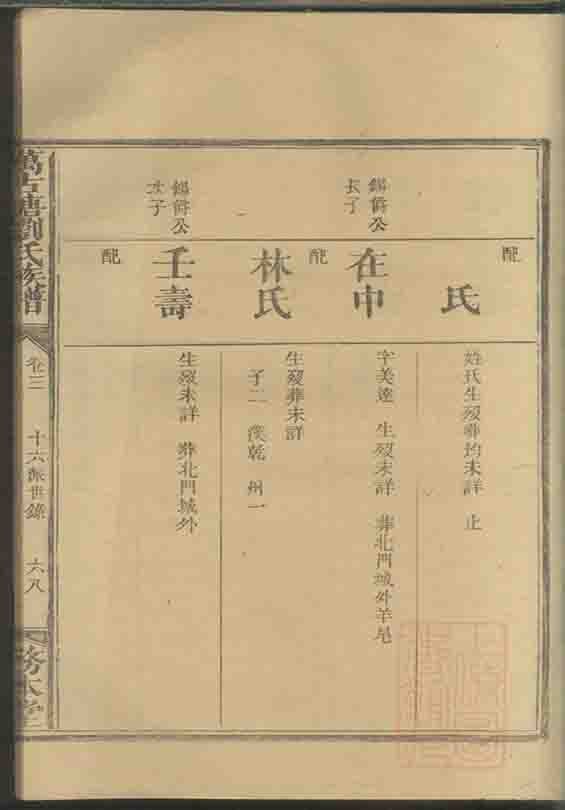 配
氏
姓氏生歿葬均未詳 止
錫爵公
長子
在中
字美達 生歿未詳 葬北門城外羊尾
配
林氏
生歿葬未詳
子二 漢乾 州一
錫爵公
次子
壬壽
生歿未詳 葬北門城外
配
萬古塘劉氏族譜
卷三
十六派世錄
六八
務本堂